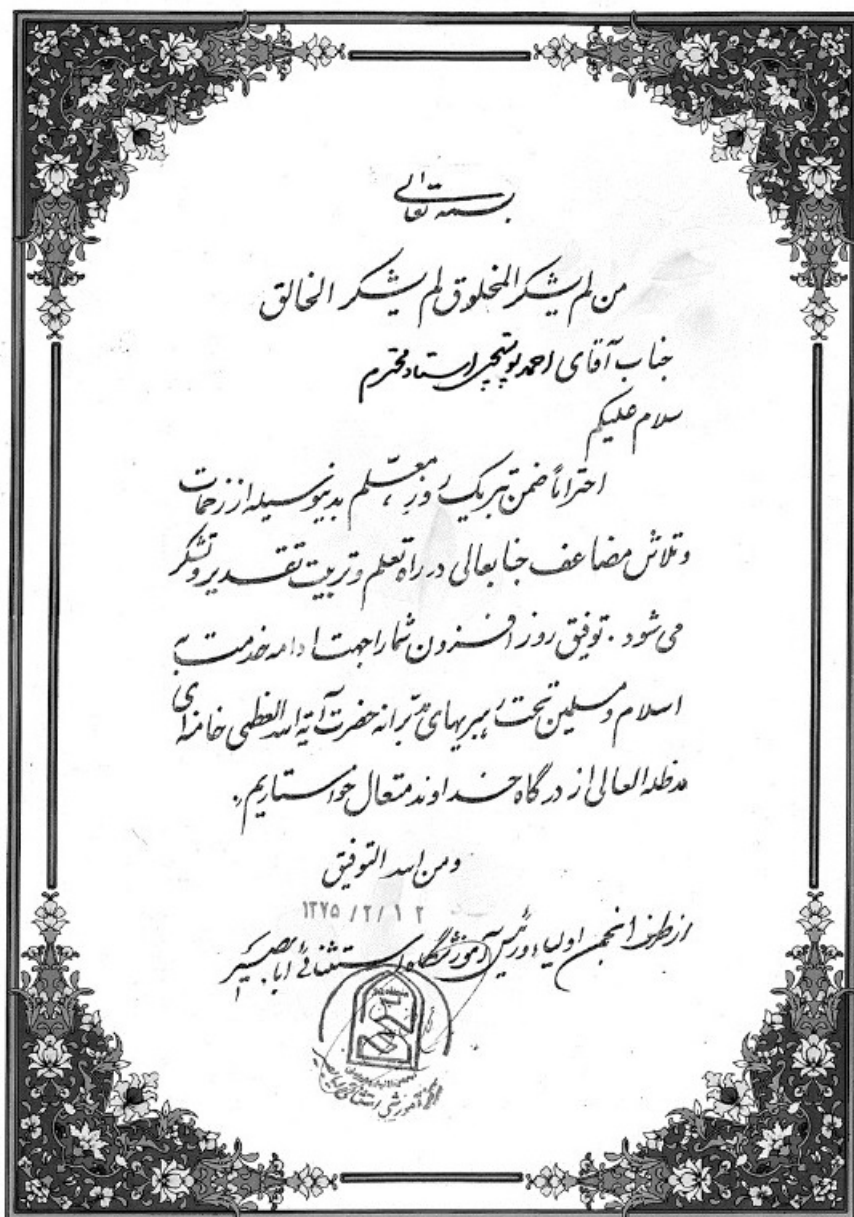 بسمه تعالی
من لم یشکر المخلوق لم یشکر الخالق
جناب آقای احمد پوستچی استاد محترم
سلام علیکم
احتراماً ضمن تبریک روز معلّم بدینوسیله از زحمات
و تلاش مضاعف جنابعالی در راه تعلم و تربیت تقدیر و تشکر
می شود . توفیق روز افزون شما را جهت ادامه خدمت به
اسلام و مسلمین تحت رهبریهای مدبّرانه حضرت آیة الله العظمی خامنه ای
مدظله العالی از درگاه خداوند متعال خواستاریم .
و من الله التوفیق
۱۳۷۵/۲/۱۲
از طرف انجمن اولیاء و رئیس آموزشگاه استثنائی ابابصیر